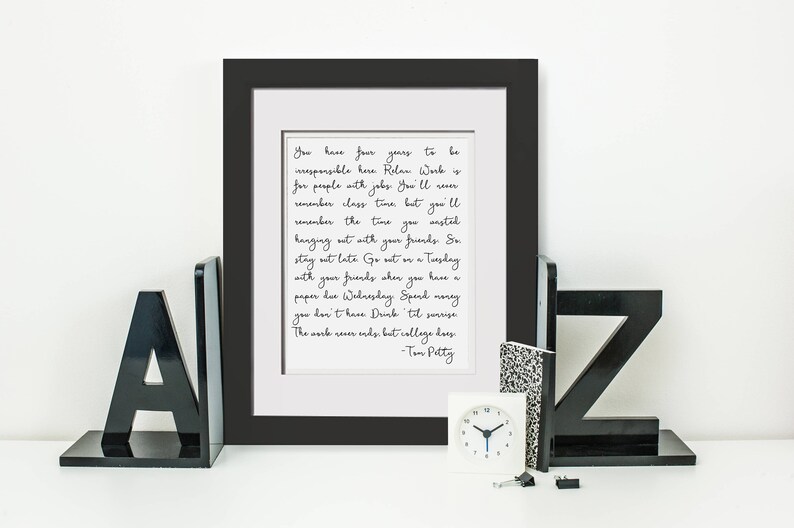 You have four years to be
irresponsible here. Relax. Work is
for people with jobs. You'll never
remember class time, but you'll
remember the time you wasted
hanging out with your friends. So,
stay out late. Go out on a Tuesday
with your friends when you have a
paper due Wednesday. Spend money
you don't have. Drink 'til sunrise.
The work never ends, but college does.
-Tom Petty
A
Z
12
1
2
3
4
5
6
7
8
9
10
11